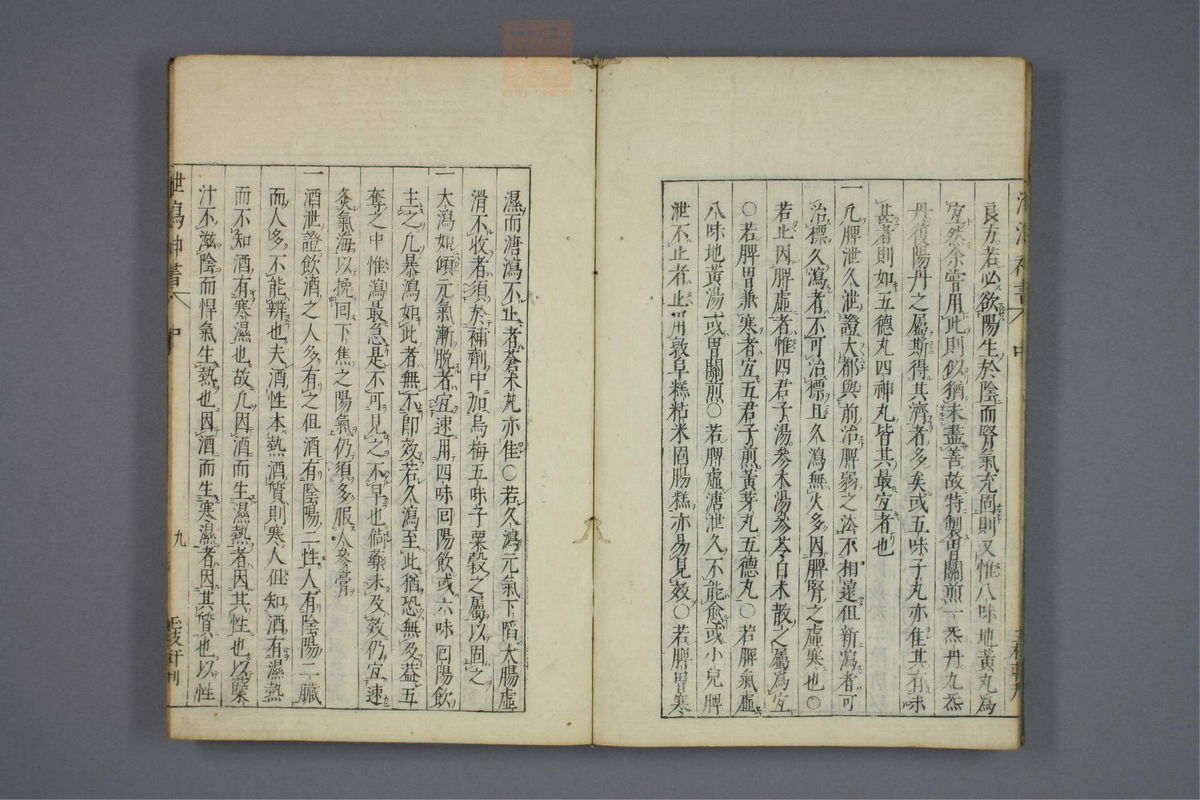 良方若必欲陽生於陰而腎氣充固則又惟八味地黃丸爲
宜然余嘗用此則似猶未盡善故特製胃關煎一炁丹九炁
丹復陽丹之屬斯得其濟者多矣或五味子丸亦佳其有味
甚者則如五德丸四神丸皆其最宜者也
一凡脾泄久泄證大都與前治脾弱之法不相遠但新瀉者可
治標久瀉者不可治標且久瀉無火多因脾腎之虛寒也○
若止因脾虛者惟四君子湯參朮湯參苓白朮散之屬爲宜
○若脾胃兼寒者宜五君子煎黃芽丸五德丸○若脾氣虛
八味地黃湯或胃關煎○若脾虛溏泄久不能愈或小兒脾
泄不止者止用敦阜糕粘米固腸糕亦易見效○若脾胃寒
濕而溏瀉不止者蒼朮丸亦佳○若久瀉元氣下陷大腸虛
滑不收者須於補劑中加烏梅五味子粟殼之屬以固之
一大瀉如傾元氣漸脫者宜速用四味回陽飲或六味回陽飲
主之凡暴瀉如此者無不即效若久瀉至此猶恐無及蓋五
奪之中惟瀉最急是不可見之不早也倘藥未及效仍宜速
灸氣海以挽回下焦之陽氣仍須多服人參膏
一酒泄證飲酒之人多有之但酒有陰陽二性人有陰陽二臟
而人多不能辨也夫酒性本熱酒質則寒人但知酒有濕熱
而不知酒有寒濕也故凡因酒而生濕熱者因其性也以蘗
汁不滋陰而悍氣生熱也因酒而生寒濕者因其質也以性
泄瀉神書
中
九